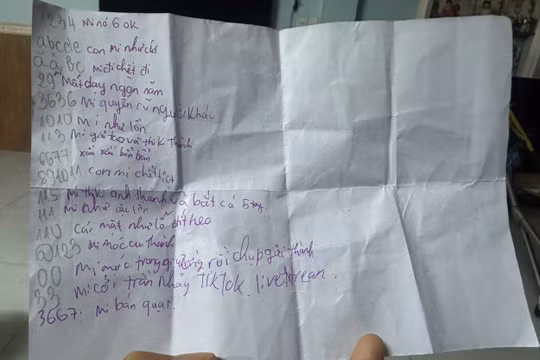 1234 Mi nó 6 ok
abcde con mi như chi
aăâbc mi đi chết đi
29 Mất dạy ngàn năm
3636 Mi quyến rũ người khác
1010 Mi như lồn
113 Mi giả tạo và thik Thành
6677 xấu xấu bẩn bẩn
891011 con mi chết
115 Mi thik anh thanh và bắt cá 5 tay
111 mi như
110 Cái mặt như lỗ đít heo
@123 mi móc cu thành
00 Mi móc trong rồi chụp gửi thành
33 mi cởi trần nhảy TikTok, livetrean.
3667: mi bán quạt